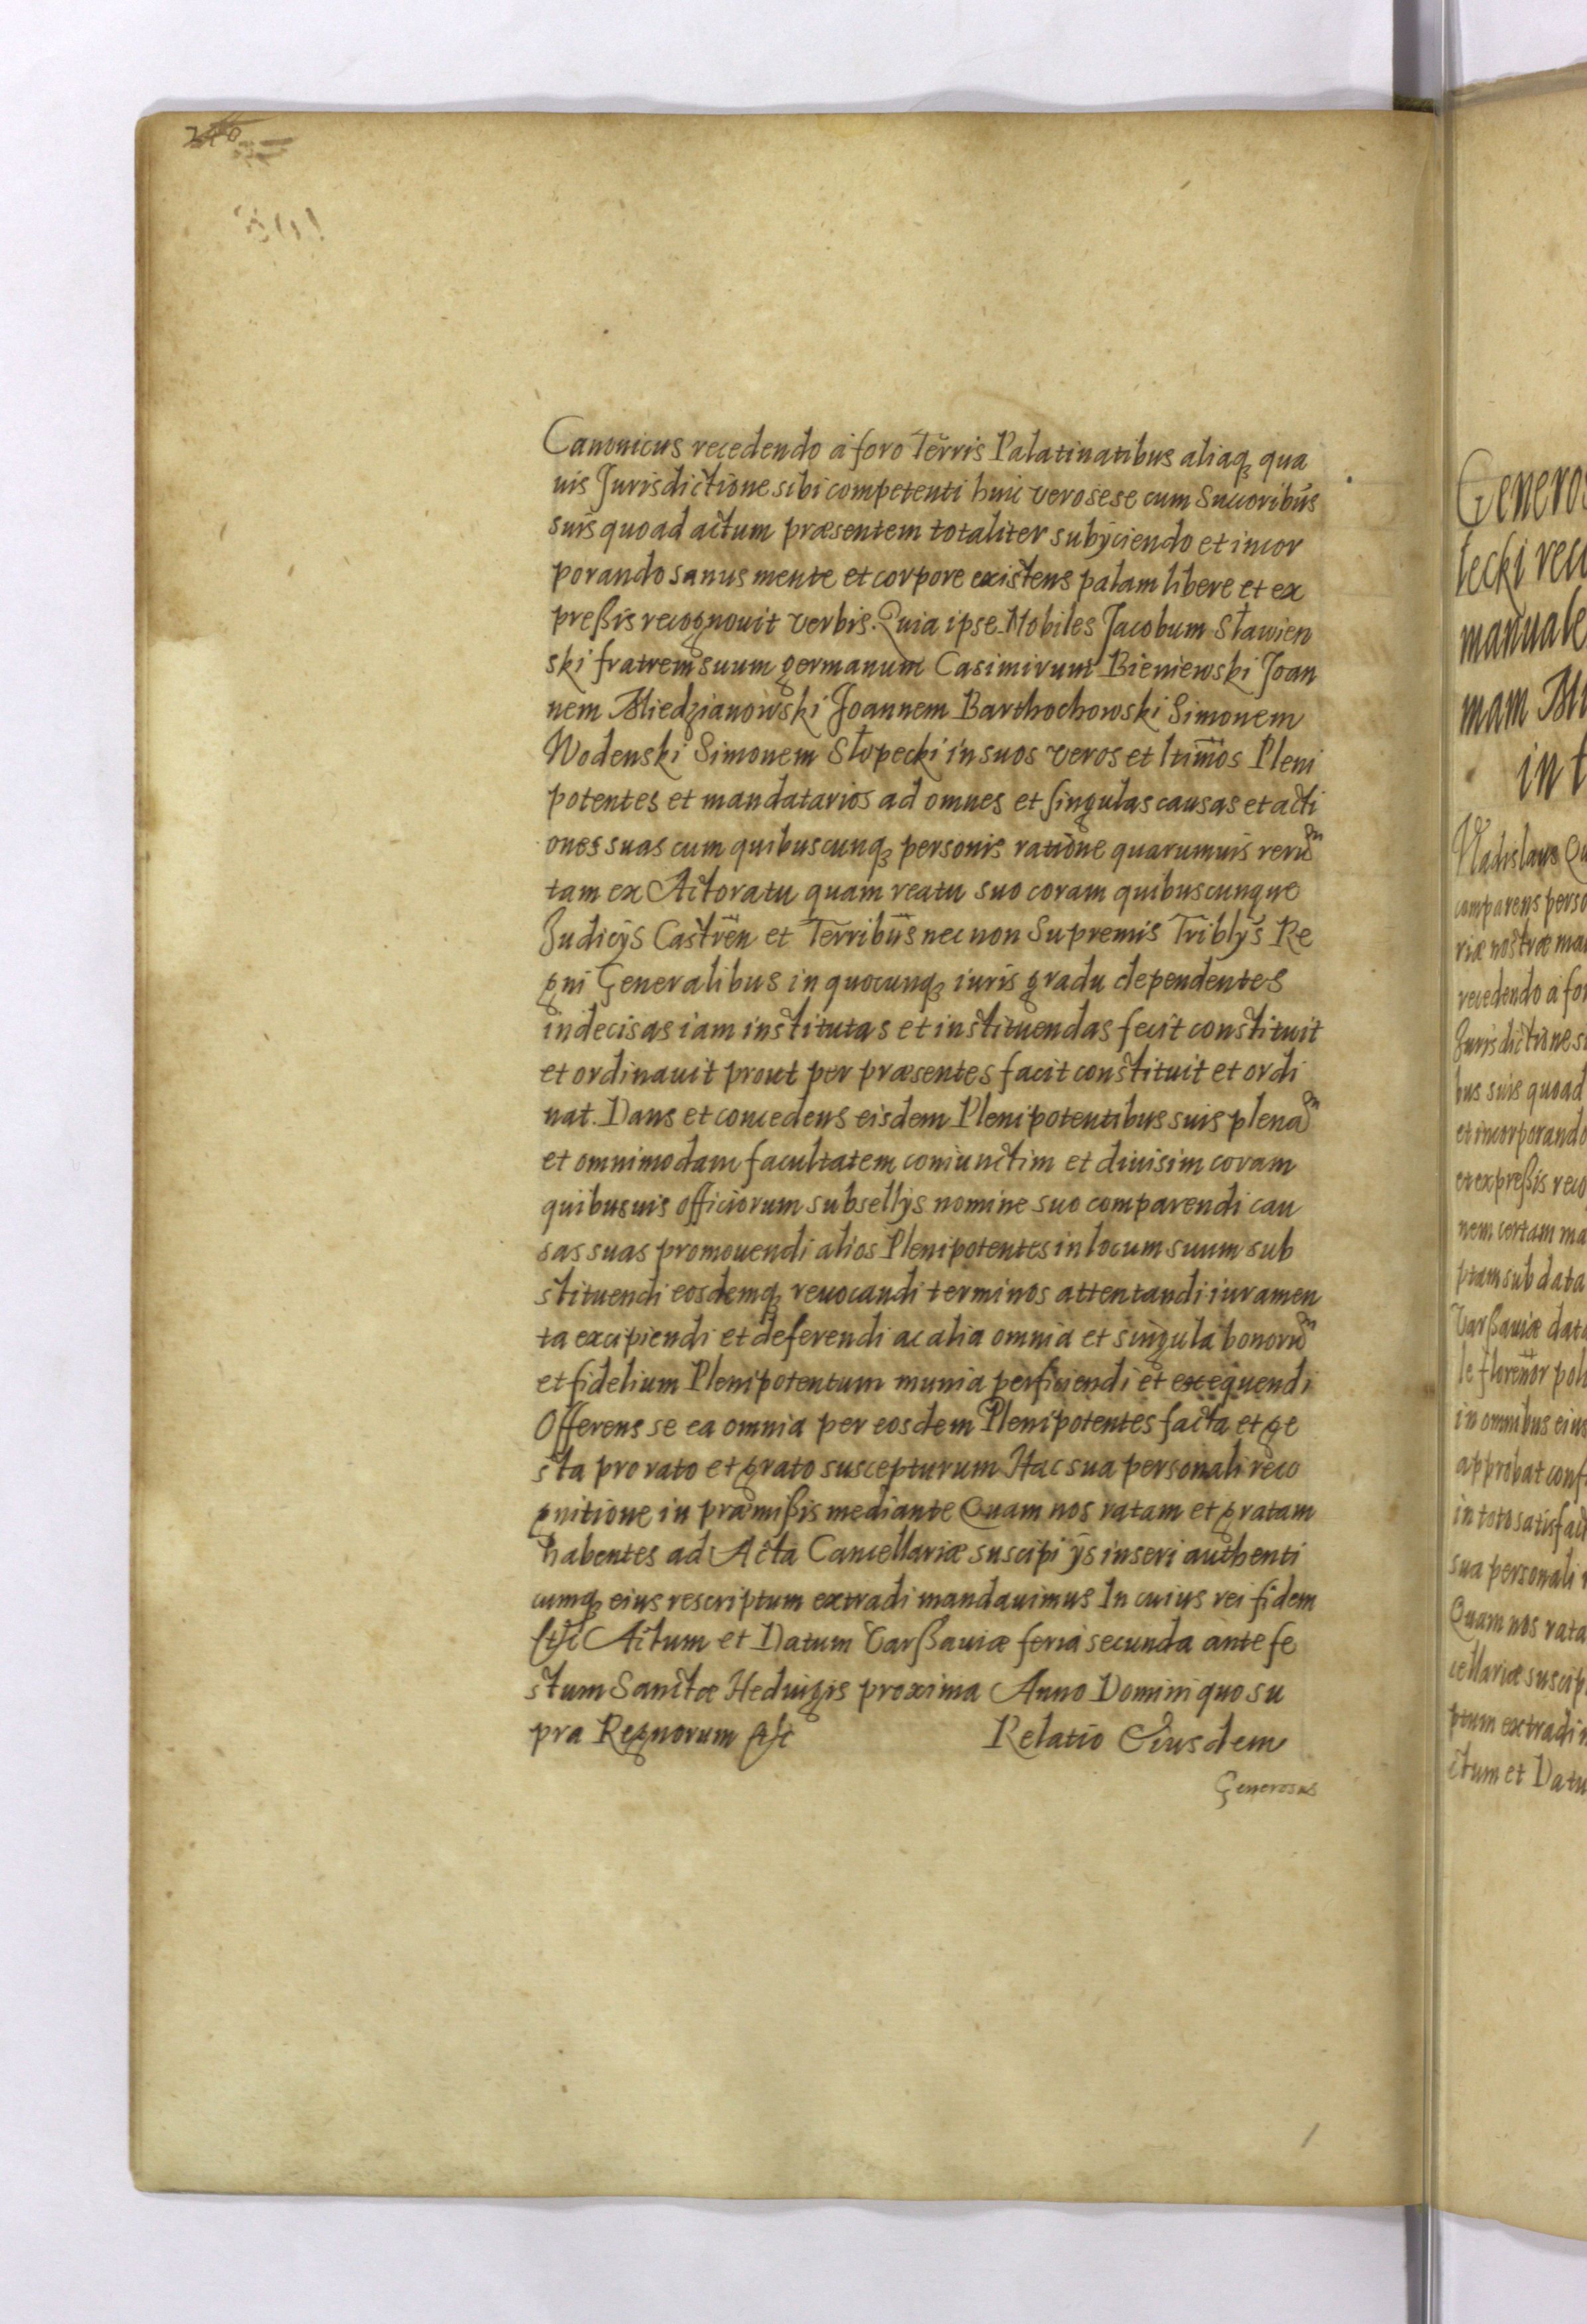 240
Canonicus recedendo à foro Terris Palatinatibus aliaq₃ qua
uis Jurisdictione sibi competenti huic vero sese cum Succoribus
suis quo ad actum præsentem totaliter subÿciendo et incor
porando sanus mente et corpore existens palam libere et ex
preßis recognouit verbis. Quia ipse Nobiles Jacobum Sławien
ski fratrem suum germanum Casimirum Bieniewski Joan
nem Miedzianowski Joannem Barthochowski Simonem
Wodenski Simonem Słopecki in suos veros et ltimos Pleni
potentes et mandatarios ad omnes et singulas causas et acti
ones suas cum quibuscunq₃ personis ratione quarumuis rerum
tam ex Actoratu quam reatu suo coram quibuscunque
Judicÿs Castren et Terribus nec non Supremis Triblÿs Re
gni Generalibus in quocunq₃ iuris gradu dependentes
indecisas iam institutas et instituendas fecit constituit
et ordinauit prout per præsentes facit constituit et ordi
nat. Dans et concedens eisdem Plenipotentibus suis plenam
et omnimodam facultatem coniunctim et diuisim coram
quibusuis officiorum subsellÿs nomine suo comparendi cau
sas suas promouendi alios Plenipotentes in locum suum sub
stituendi eosdemq₃ reuocandi terminos attentandi iuramen
ta excipiendi et deferendi ac alia omnia et singula bonorum
et fidelium Plenipotentum munia perficiendi et exequendi
Offerens se ea omnia per eosdem Plenipotentes facta et ge
sta pro rato et grato suscepturum Hac sua personali reco
gnitione in præmißis mediante Quam nos ratam et gratam
habentes ad Acta Cancellariæ suscipi ÿs inseri authenti
cumq₃ eius rescriptum extradi mandauimus In cuius rei fidem
etc Actum et Datum Varßauiæ feria secunda ante fe
stum Sanctæ Heduigis proxima Anno Domini quo su
pra Regnorum etc Relatio Eiusdem
Generosus
Generos
tecki reco
manuale
mam Mi
in t
Vladislaus Qu
comparens perso
riæ nostræ ma
recedendo à for
Jurisdictione si
bus suis quoad
et incorporando
et expreßis reco
nem certam ma
ptam sub data
Varßauiæ data
le florenor pol
in omnibus eius
approbat conf
in toto satisfact
sua personali r
Quam nos rata
cellariæ suscip
ptum extradi m
ctum et Datu